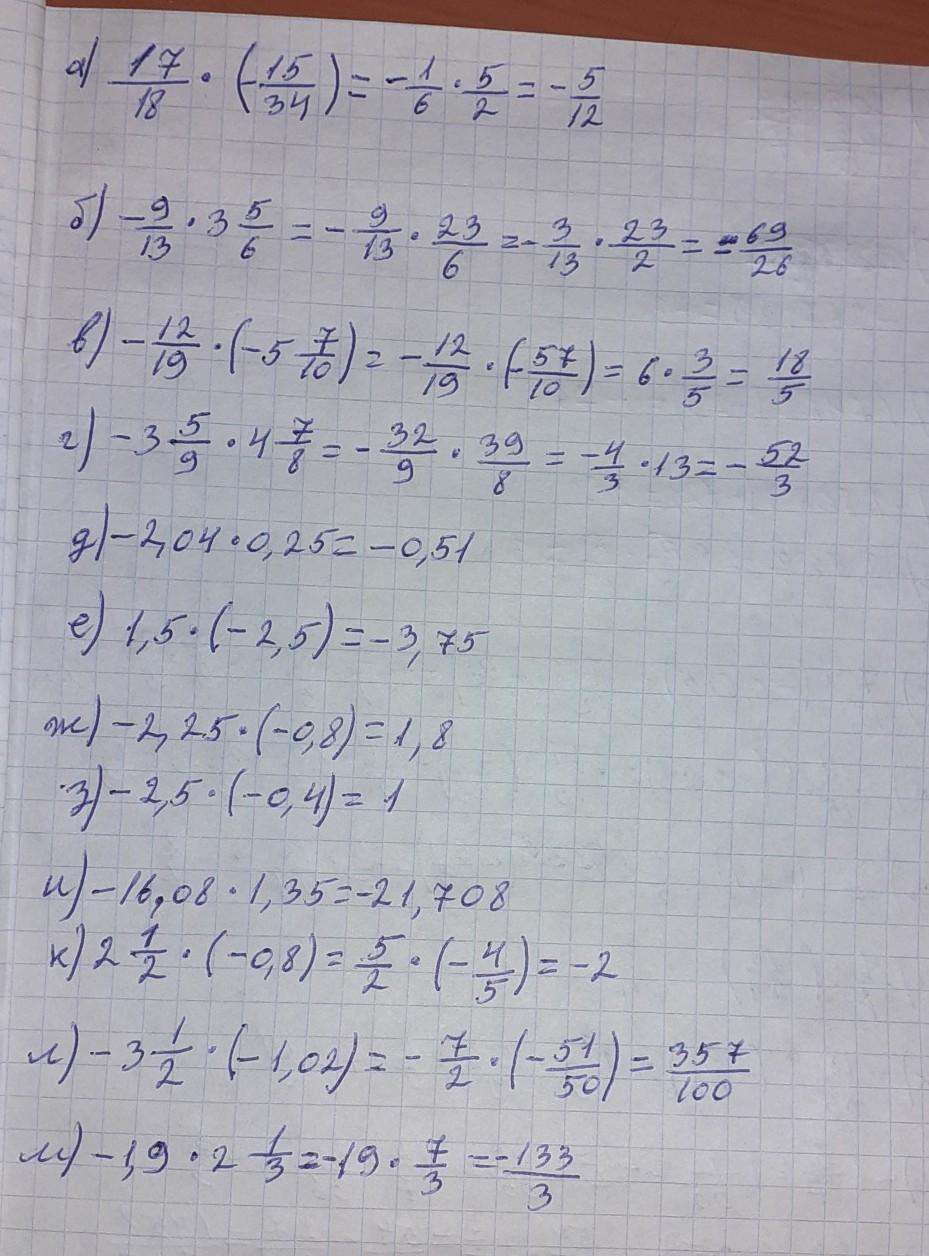 а) 17/18 · (-15/34) = -1/6 · 5/2 = -5/12
б) -9/13 · 3 5/6 = -9/13 · 23/6 = -3/13 · 23/2 = -69/26
в) -12/19 · (-5 7/10) = -12/19 · (-57/10) = 6 · 3/5 = 18/5
г) -3 5/9 · 4 7/8 = -32/9 · 39/8 = -4/3 · 13 = -52/3
д) -2,04 · 0,25 = -0,51
е) 1,5 · (-2,5) = -3,75
ж) -2,25 · (-0,8) = 1,8
з) -2,5 · (-0,4) = 1
и) -16,08 · 1,35 = -21,708
к) 2 1/2 · (-0,8) = 5/2 · (-4/5) = -2
л) -3 1/2 · (-1,02) = -7/2 · (-51/50) = 357/100
м) -1,9 · 2 1/3 = -19 · 7/3 = -133/3